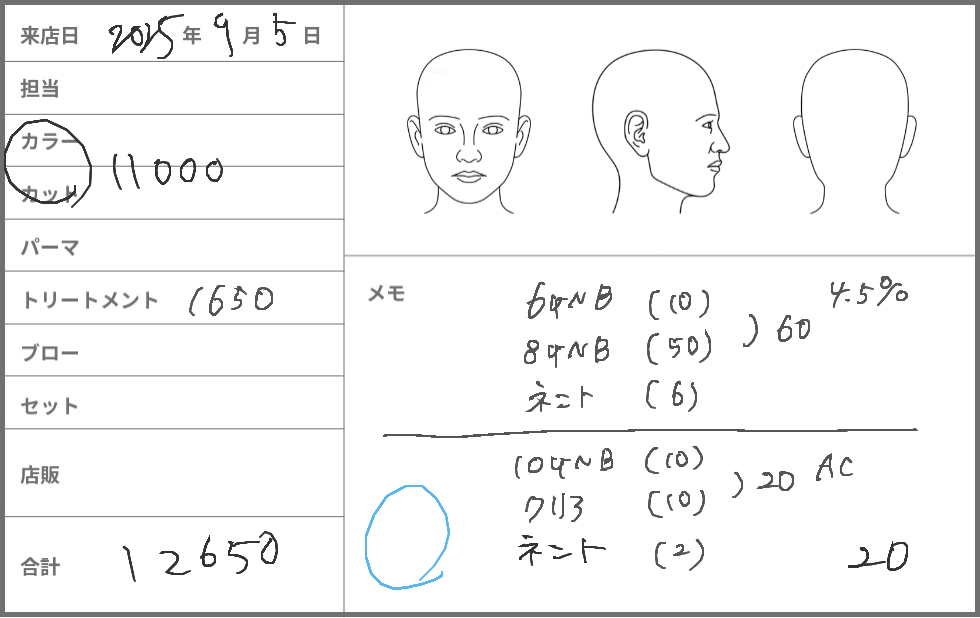 来店日 2025年9月5日
担当
カラー
カット 11000
パーマ
トリートメント 1650
ブロー
セット
店販
合計 12650
メモ
4.5%
(10)
(50) ) 60
(6)
(10)
クリア (10) ) 20 AC
(2)
20